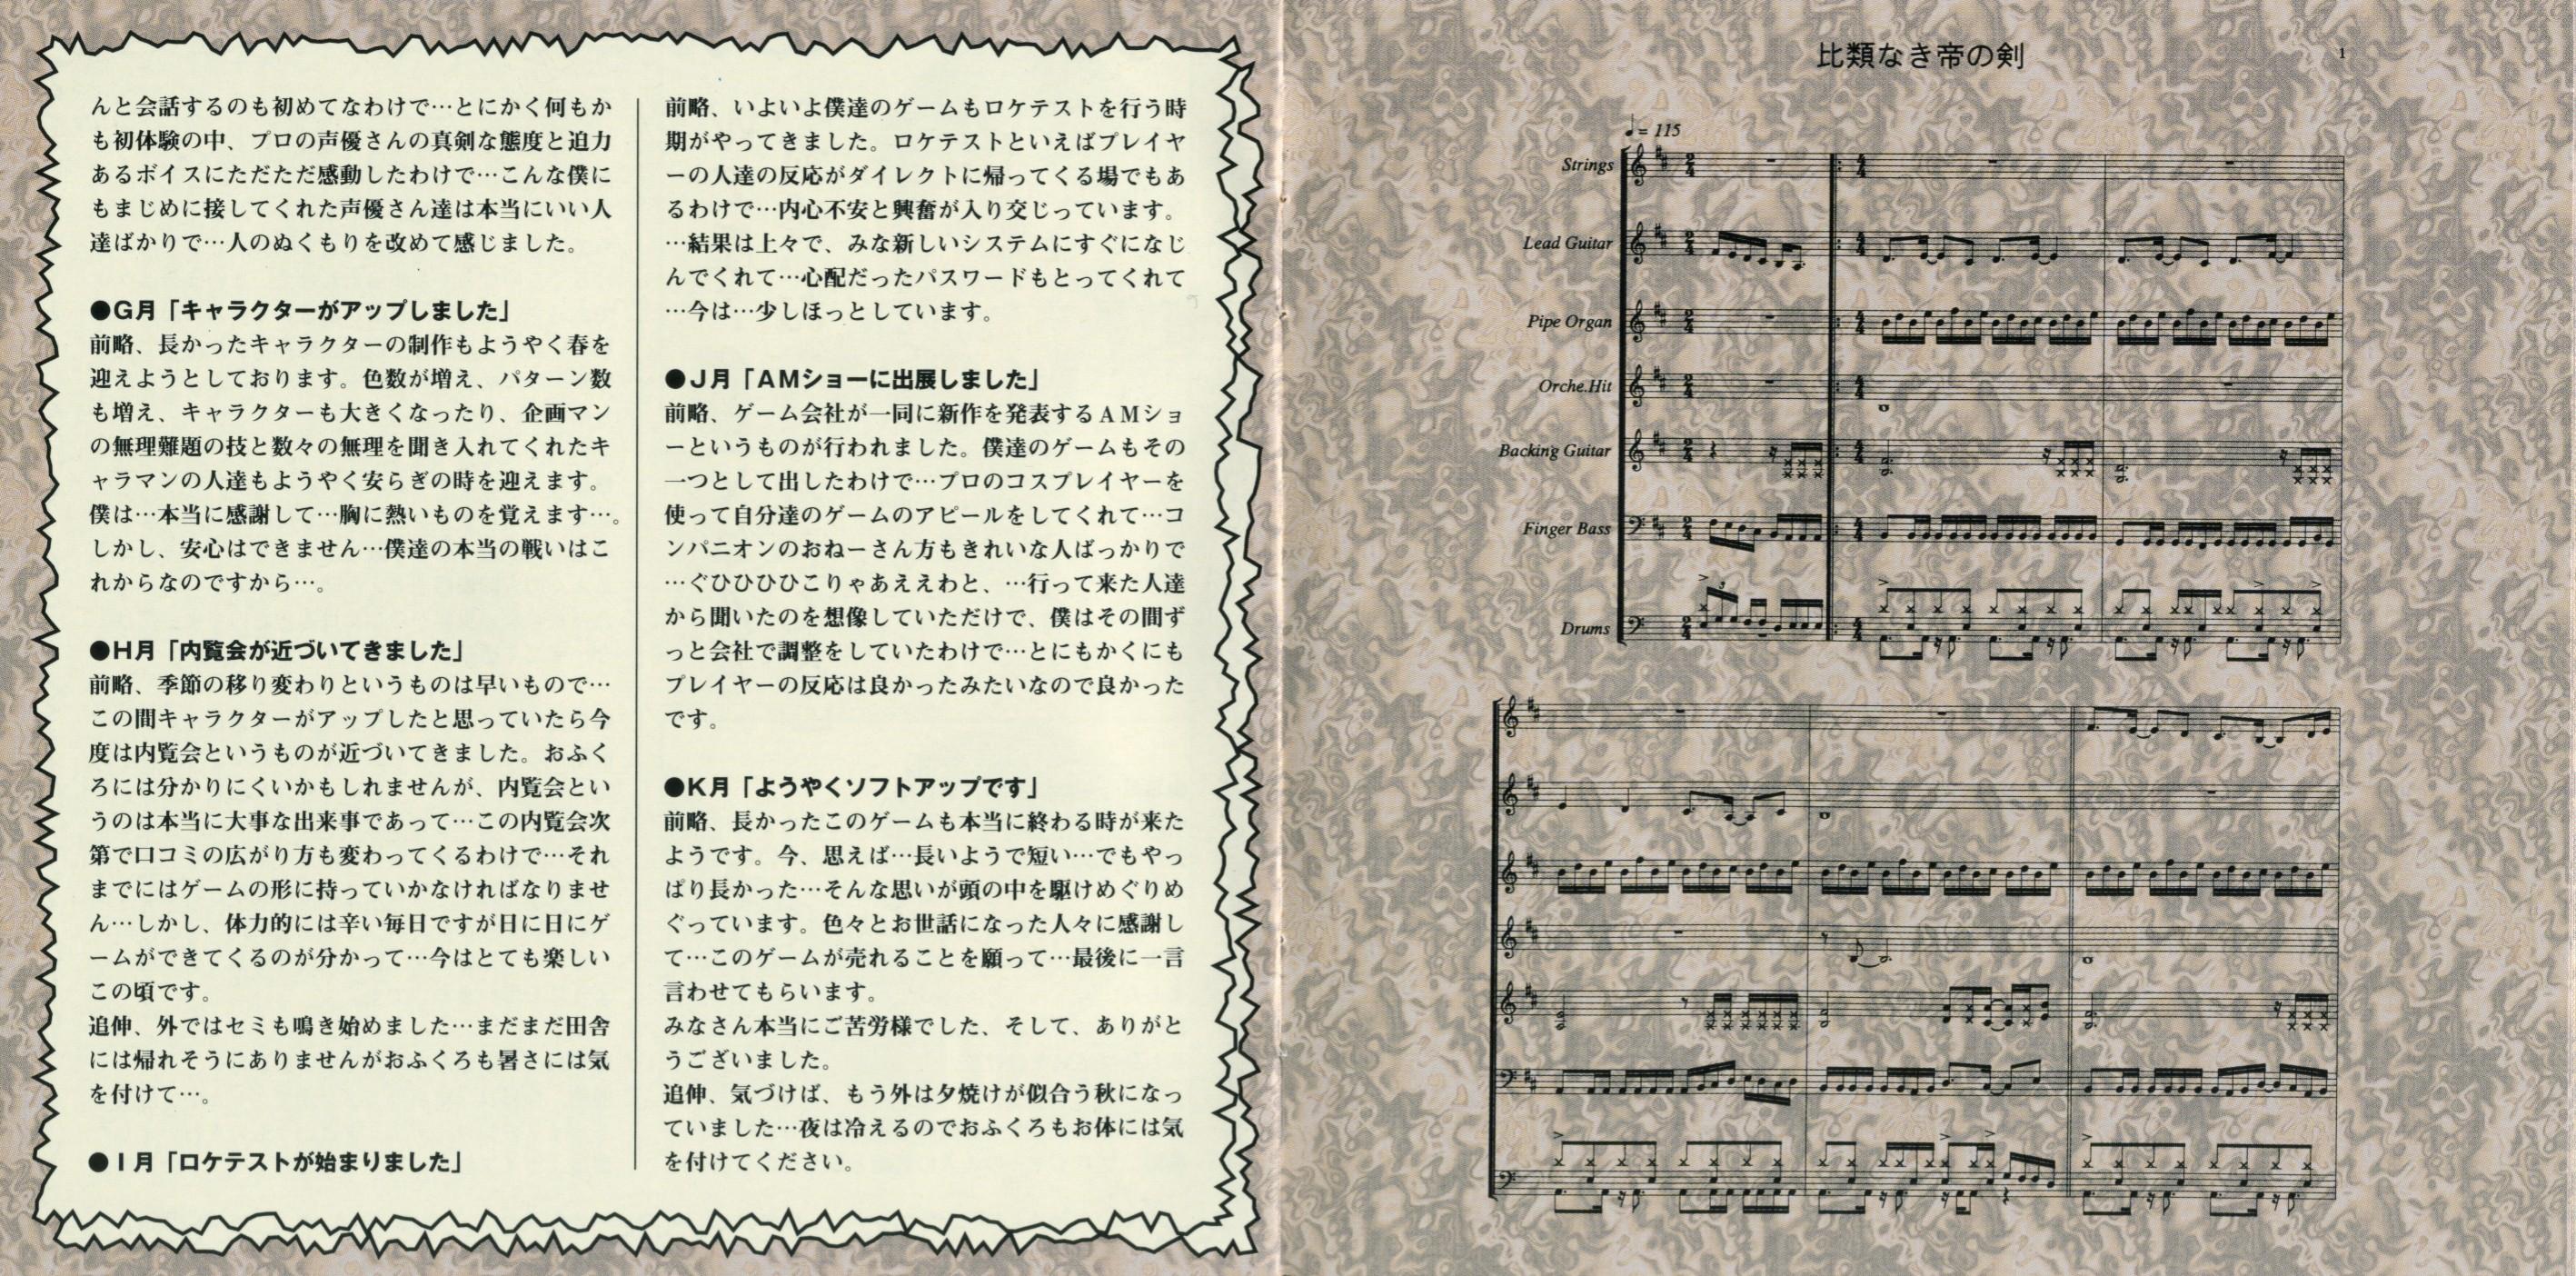 んと会話するのも初めてなわけで…とにかく何もか
も初体験の中、プロの声優さんの真剣な態度と迫力
あるボイスにただただ感動したわけで…こんな僕に
もまじめに接してくれた声優さん達は本当にいい人
達ばかりで…人のぬくもりを改めて感じました。
●G月「キャラクターがアップしました」
前略、長かったキャラクターの制作もようやく春を
迎えようとしております。色数が増え、パターン数
も増え、キャラクターも大きくなったり、企画マン
の無理難題の技と数々の無理を聞き入れてくれたキ
ャラマンの人達もようやく安らぎの時を迎えます。
僕は…本当に感謝して…胸に熱いものを覚えます…。
しかし、安心はできません…僕達の本当の戦いはこ
れからなのですから…。
●H月「内覧会が近づいてきました」
前略、季節の移り変わりというものは早いもので…
この間キャラクターがアップしたと思っていたら今
度は内覧会というものが近づいてきました。おふく
ろには分かりにくいかもしれませんが、内覧会とい
うのは本当に大事な出来事であって…この内覧会次
第で口コミの広がり方も変わってくるわけで…それ
までにはゲームの形に持っていかなければなりませ
ん…しかし、体力的には辛い毎日ですが日に日にゲ
ームができてくるのが分かって…今はとても楽しい
この頃です。
追伸、外ではセミも鳴き始めました…まだまだ田舎
には帰れそうにありませんがおふくろも暑さには気
を付けて…。
●I月「ロケテストが始まりました」
前略、いよいよ僕達のゲームもロケテストを行う時
期がやってきました。ロケテストといえばプレイヤ
ーの人達の反応がダイレクトに帰ってくる場でもあ
るわけで…内心不安と興奮が入り交じっています。
…結果は上々で、みな新しいシステムにすぐになじ
んでくれて…心配だったパスワードもとってくれて
…今は…少しほっとしています。
●J月「AMショーに出展しました」
前略、ゲーム会社が一同に新作を発表するAMショ
ーというものが行われました。僕達のゲームもその
一つとして出したわけで…プロのコスプレイヤーを
使って自分達のゲームのアピールをしてくれて…コ
ンパニオンのおねーさん方もきれいな人ばっかりで
…ぐひひひひこりゃあええわと、…行って来た人達
から聞いたのを想像していただけで、僕はその間ず
っと会社で調整をしていたわけで…とにもかくにも
プレイヤーの反応は良かったみたいなので良かった
です。
●K月「ようやくソフトアップです」
前略、長かったこのゲームも本当に終わる時が来た
ようです。今、思えば…長いようで短い…でもやっ
ぱり長かった…そんな思いが頭の中を駆けめぐりめ
ぐっています。色々とお世話になった人々に感謝し
て…このゲームが売れることを願って…最後に一言
言わせてもらいます。
みなさん本当にご苦労様でした、そして、ありがと
うございました。
追伸、気づけば、もう外は夕焼けが似合う秋になっ
ていました…夜は冷えるのでおふくろもお体には気
を付けてください。
比類なき帝の剣
1
♩= 115
Strings
Lead Guitar
Pipe Organ
Orche.Hit
Backing Guitar
Finger Bass
3
Drums